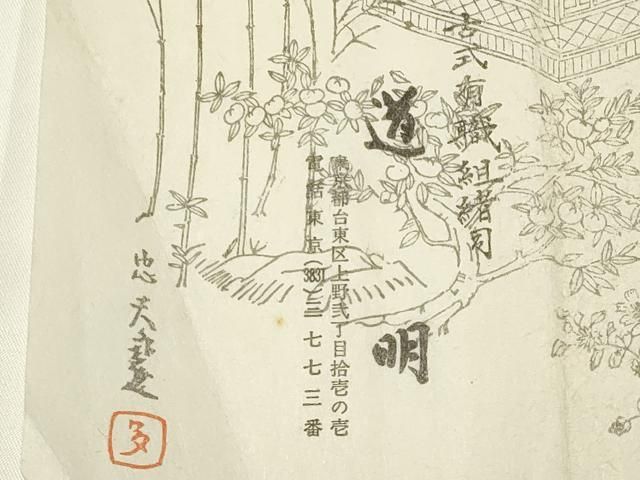 古式有職組緒司
道明
東京都台東区上野弐丁目拾壱の壱
電話東京(831)三七七三番
忠夫